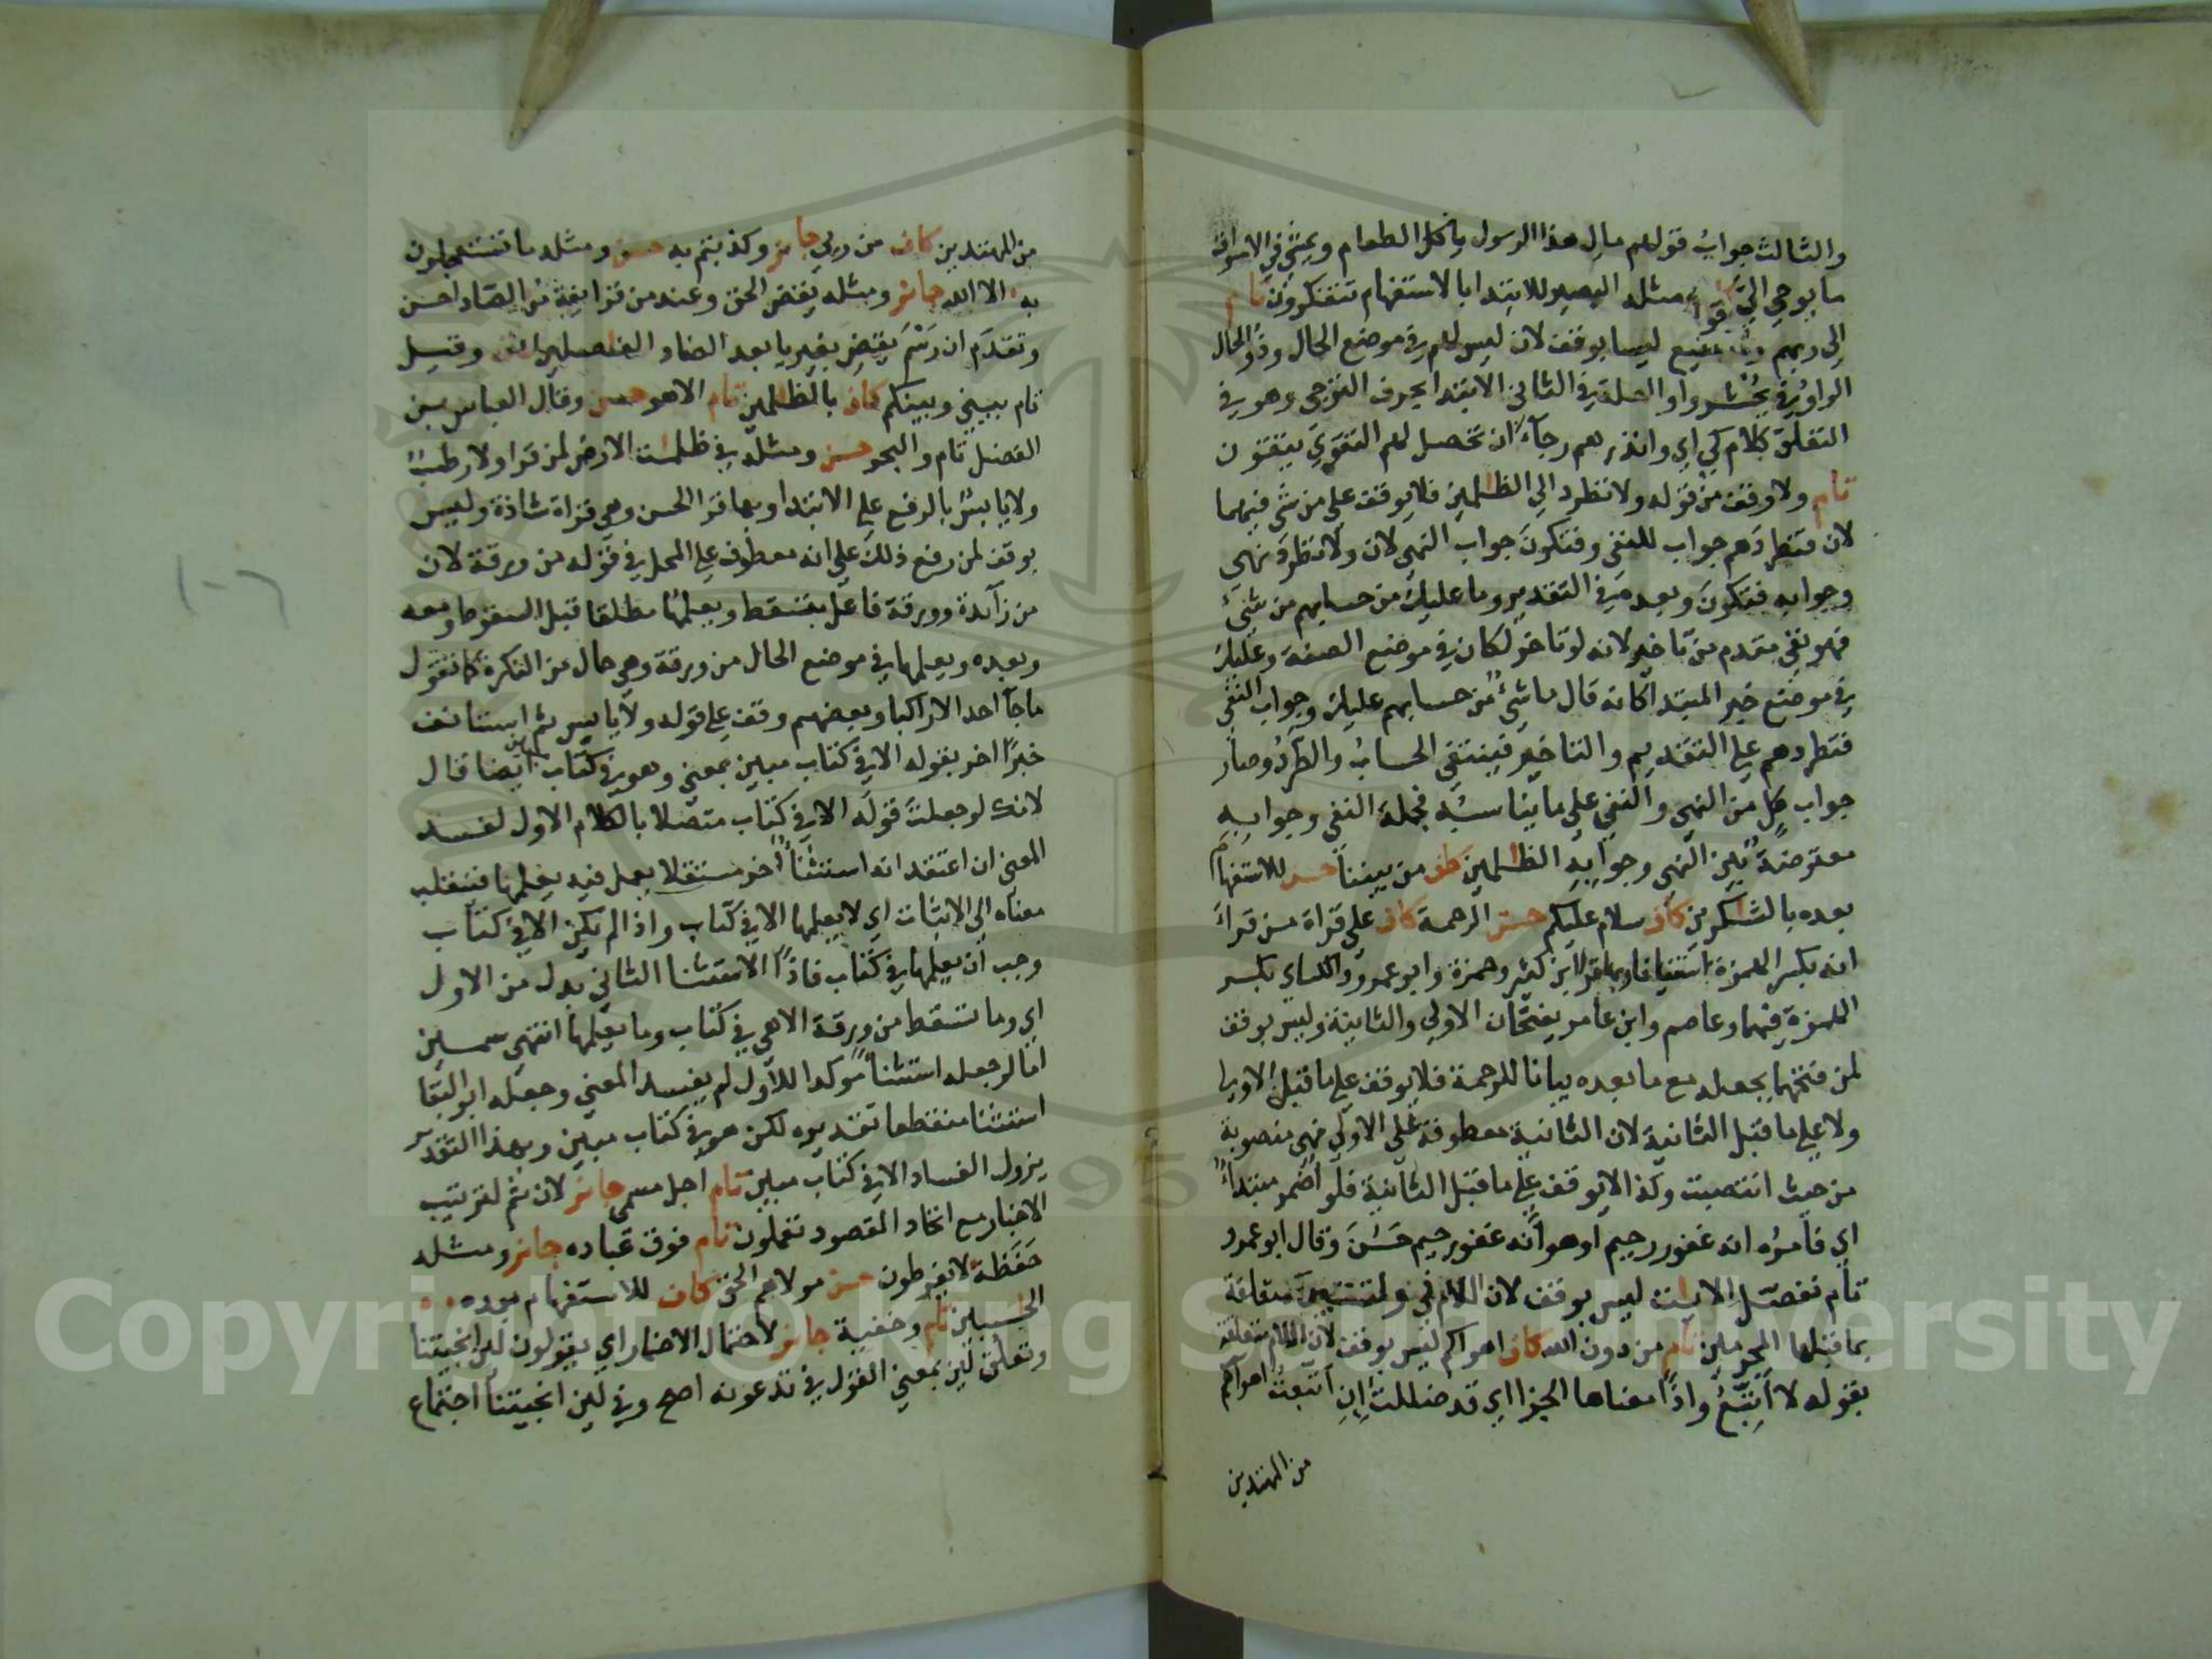 والثالث جواب قولهم مال هذا الرسول ياكل الطعام ويمشي في الاسواق
ما يوحي الي ومثله البصير للابتدا بالاستفهام تتفكرون تام
الى ربهم ولا شفيع ليسا بوقف لان ليس لهم في موضع الحال وذو الحال
الواو في يحشروا والعلة في الثاني الابتدا بحرف الترجي وهو في
التعلق كلام كي اي وانذرهم رجاء ان تحصل لهم التقوي يتقون
تام ولا وقف من قوله ولا تطرد الي الظلمين فلا يوقف علي من شي فيهما
لان فتطردهم جواب للنفي وفتكون جواب النهي لان ولا تطرد نهي
وجوابه فتكون وبعده في التقدير وما عليك من حسابهم من شيء
فهو نفي مقدم من تاخير لانه لو تاخر لكان في موضع الصفة وعليك
في موضع خبر المبتدا كانه قال ما شيء من حسابهم عليك وجواب النفي
فتطردهم علي التقديم والتاخير فينتفي الحساب والطرد وصار
جواب كل من النهي والنفي علي ما يناسبه فجملة النفي وجوابه
معترضة بين النهي وجوابه الظلمين كاف من بيننا حسن للاستفهام
بعده بالشكرين كاف سلام عليكم حسن الرحمة كاف علي قراة من قرا
انه بكسر الهمزة استئنافا وبها قرا ابن كثير وحمزة وابو عمرو والكساي بكسر
الهمزة فيهما وعاصم وابن عامر يفتحان الاولي والثانية وليس بوقف
لمن فتحهما بجعله مع ما بعده بيانا للرحمة فلا يوقف علي ما قبل الاولي
ولا علي ما قبل الثانية لان الثانية معطوفة علي الاولي فهي منصوبة
من حيث انتصبت وكذا لا يوقف علي ما قبل الثانية فلو اضمر مبتداء
اي فامره انه غفور رحيم او هو انه غفور رحيم حسن وقال ابو عمرو
تام نفصل الايت ليس بوقف لان اللام في ولتستبين متعلقة
بما قبلها المجرمين تام من دون الله كاف اهواكم ليس بوقف لان اللام متعلقة
بقوله لا اتبع واذا معناها الجزا اي قد ضللت ان اتبعت اهواكم
من المهتدين
من المهتدين كاف من ربي جائز وكذبتم به حسن ومثله ما تستعجلون
به الا الله جائز ومثله يقض الحق وعند من قرا يقض من الضاد احسن
وتقدم ان رسم يقض بغير يا بعد الضاد الفاصلين كاف وقيل
تام بيني وبينكم كاف بالظلمين تام الا هو حسن وقال العباس بن
الفضل تام والبحر حسن ومثله في ظلمت الارض لمن قرا ولا رطب
ولا يابس بالرفع علي الابتدا وبها قرا الحسن وهي قراة شاذة وليس
بوقف لمن رفع ذلك علي انه معطوف علي المحل في قوله من ورقة لان
من زائدة وورقة فاعل بتسقط ويعلمها مطلقا قبل السقوط ومعه
وبعده ويعلمها في موضع الحال من ورقة وهي حال من النكرة كما تقول
ما جا احد الا راكبا وبعضهم وقف علي قوله ولا يابس ثم استانف
خبرا اخر بقوله الا في كتاب مبين بمعني وهو في كتاب مبين ايضا قال
لانك لو جعلت قوله الا في كتاب متصلا بالكلام الاول لفسد
المعني ان اعتقد انه استثناء اخر مستقلا يعمل فيه يعلمها فينقلب
معناه الي الاثبات اي لا يعلمها الا في كتاب واذا لم يكن الا في كتاب
وجب ان يعلمها في كتاب فاذا الاستثنا الثاني بدل من الاول
اي وما تسقط من ورقة الا هي في كتاب وما يعلمها انتهي سمين
اما لو جعله استثناء موكدا للاول لم يفسد المعني وجعله ابو البقا
استثنا منقطعا تقديره لكن هو في كتاب مبين وبهذا التقدير
يزول الفساد الا في كتاب مبين تام اجل مسمي جائز لان ثم لترتيب
الاخبار مع اتحاد المقصود تعملون تام فوق عباده جائز ومثله
حفظة لا يفرطون حسن مولاهم الحق كاف للاستفهام بعده
الحسبين تام وخفية جائز لاحتمال الاضمار اي يقولون لين انجيتنا
وتعلق لين بمعني القول في تدعونه اصح وفي لين انجيتنا اجتماع